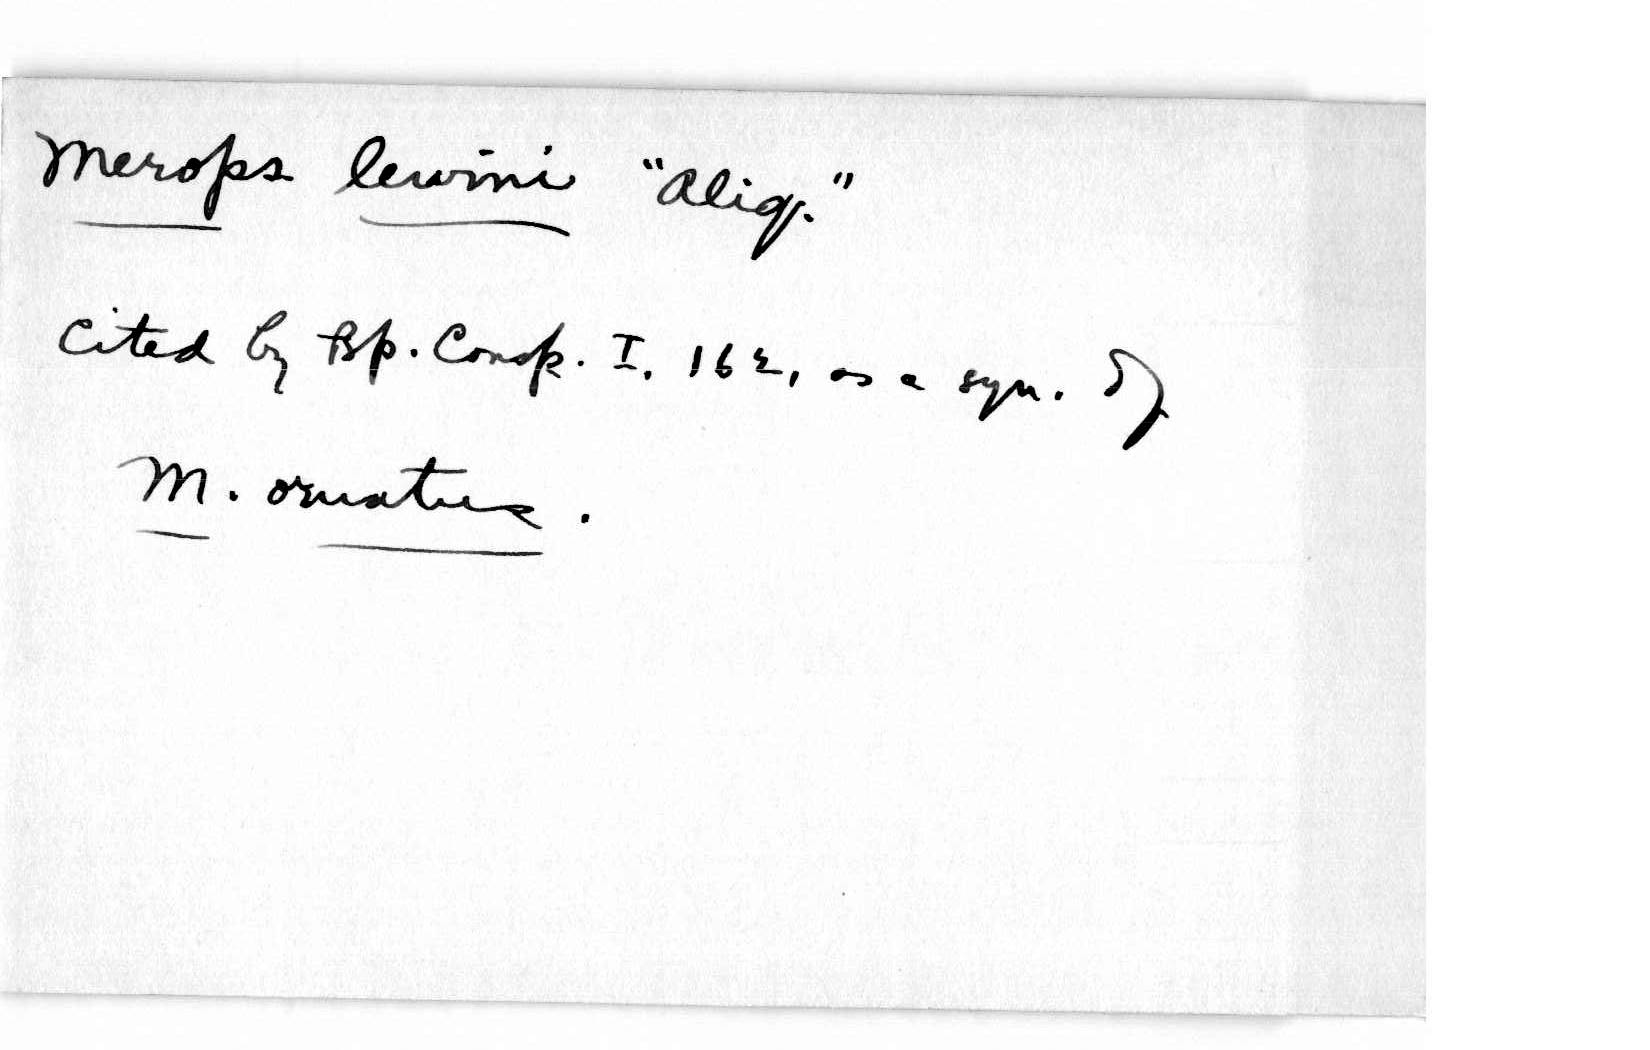 Merops lewini "Aliq."
Cited by Bp. Consp. I, 162, as a syn. of
M. ornatus.